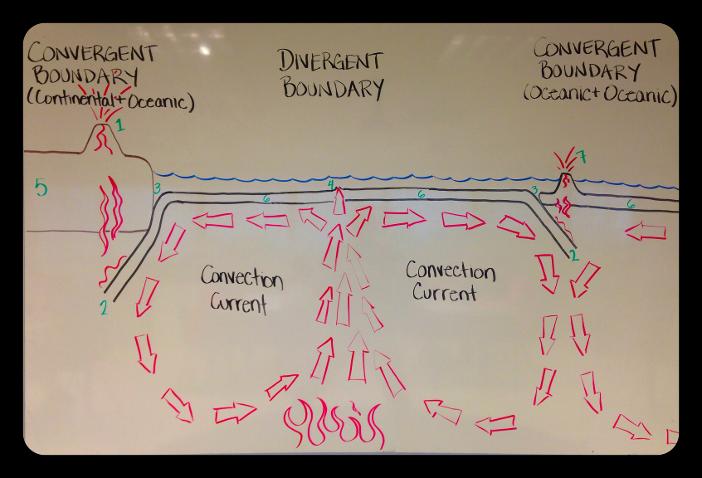 CONVERGENT
BOUNDARY
(Continental + Oceanic)
DIVERGENT
BOUNDARY
CONVERGENT
BOUNDARY
(Oceanic + Oceanic)
1
7
5
3
6
4
6
3
6
2
2
Convection
Current
Convection
Current